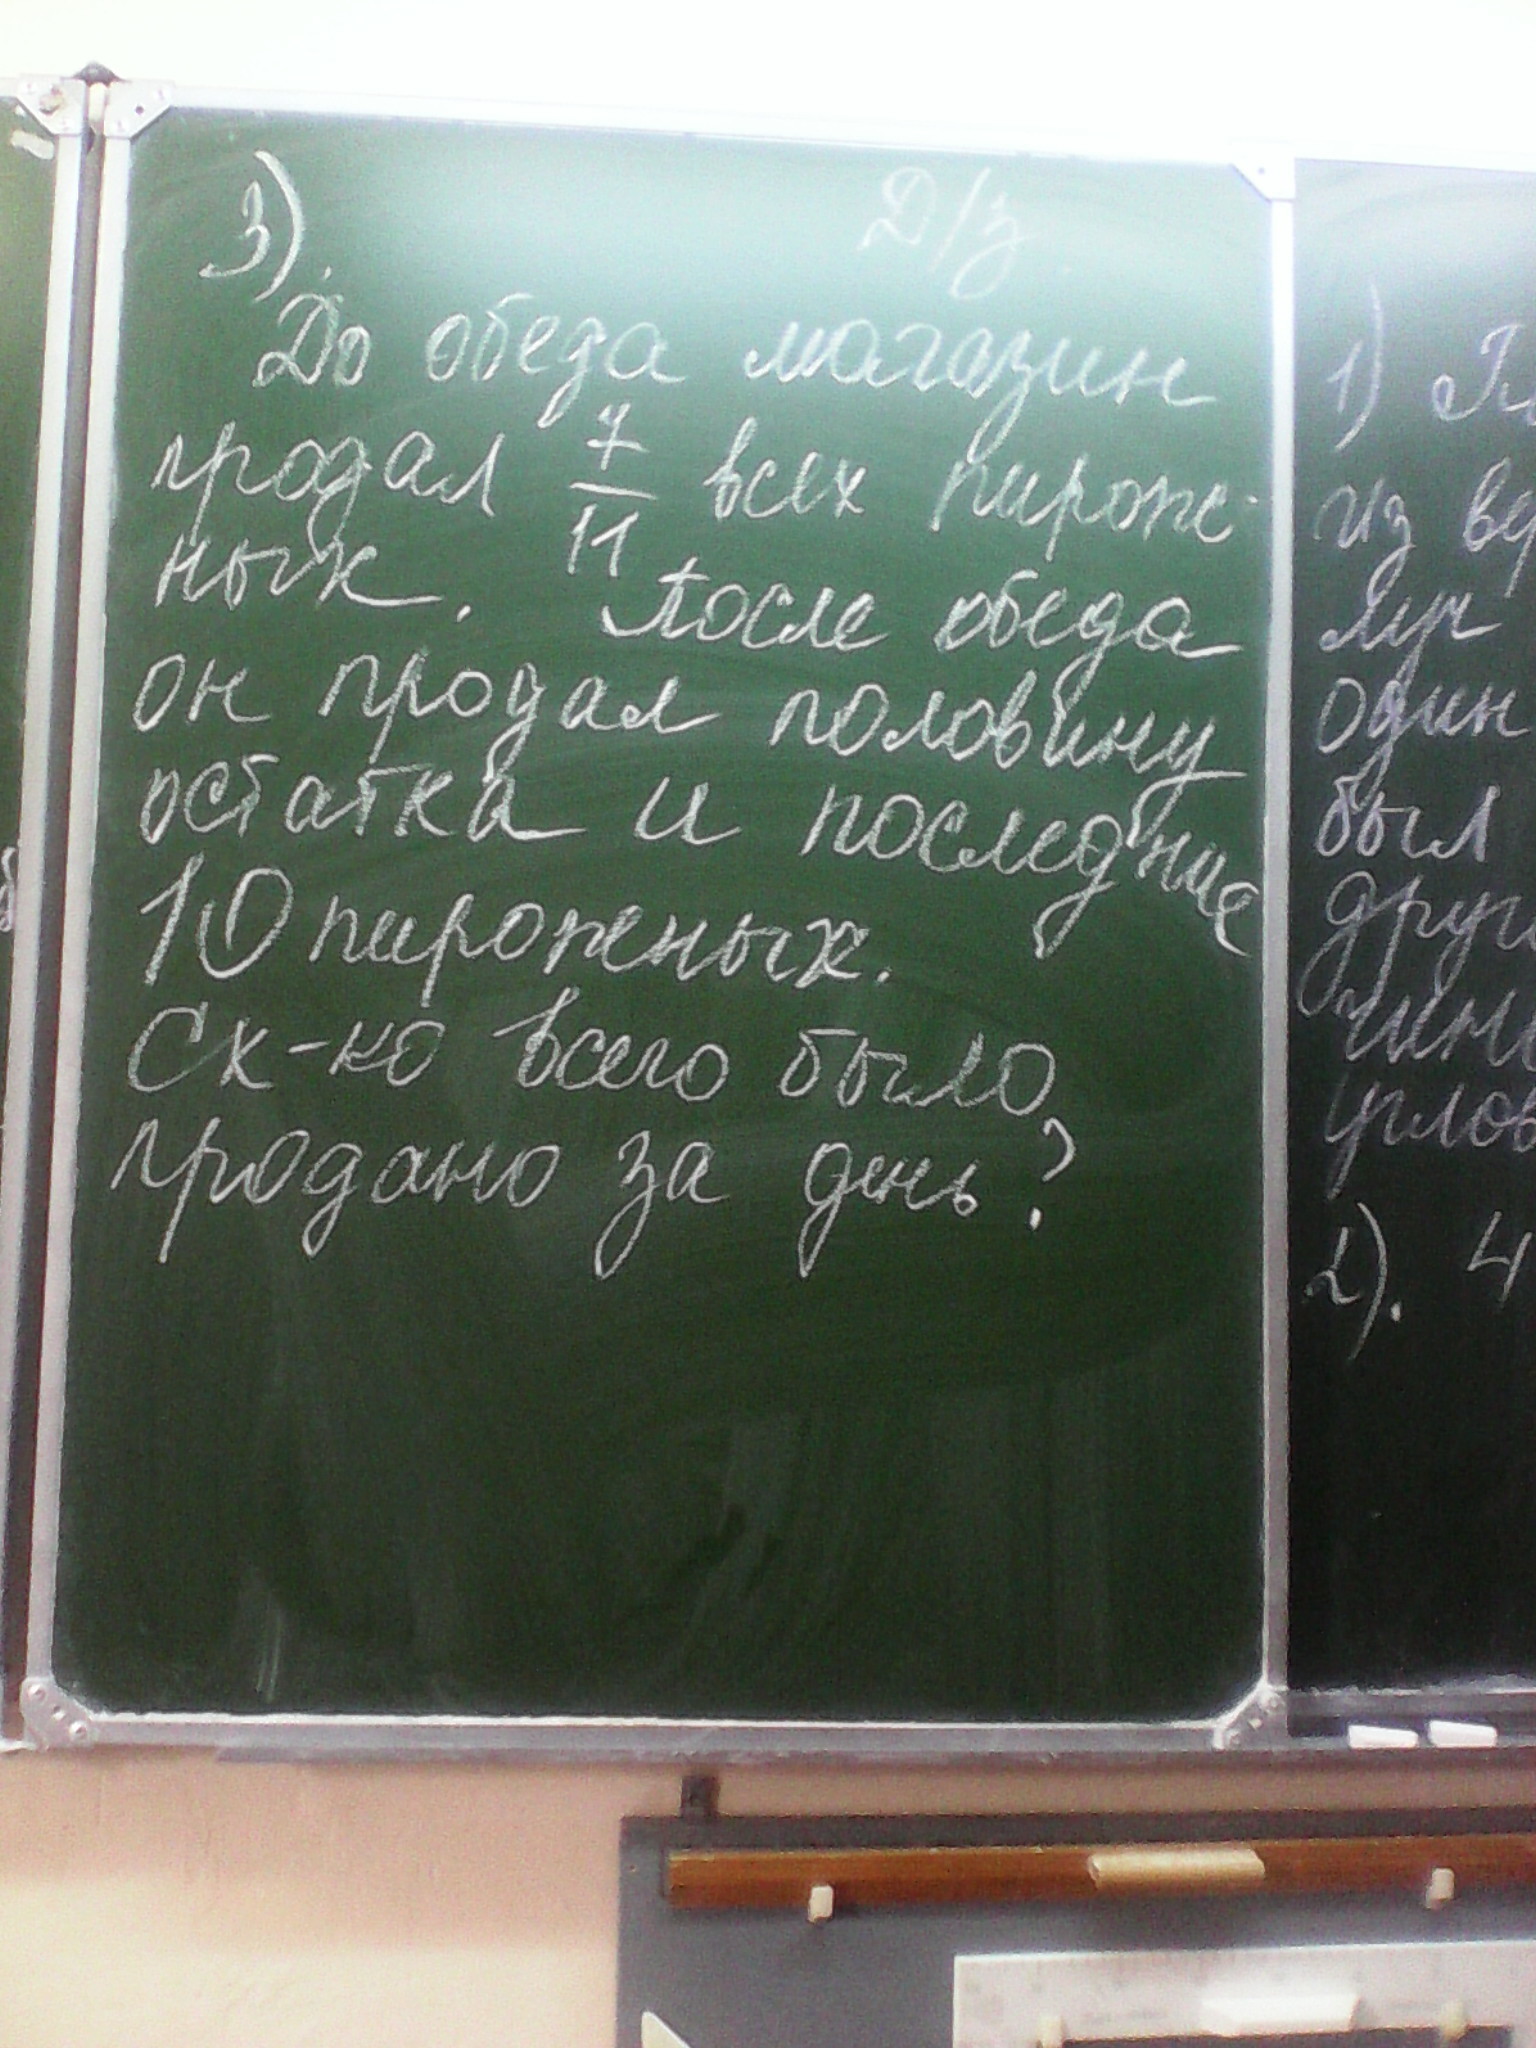 3).
Д/з.
До обеда магазин
продал 7/11 всех пирож-
ных. После обеда
он продал половину
остатка и последние
10 пирожных.
Ск-ко всего было
продано за день?
1)
из
луч
один
был
2). 4